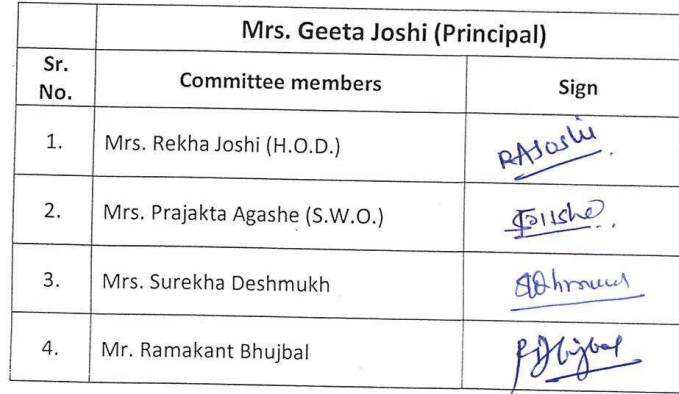 Mrs. Geeta Joshi (Principal)
Sr. No. Committee members Sign
1. Mrs. Rekha Joshi (H.O.D.) RAJoshi
2. Mrs. Prajakta Agashe (S.W.O.)
3. Mrs. Surekha Deshmukh
4. Mr. Ramakant Bhujbal